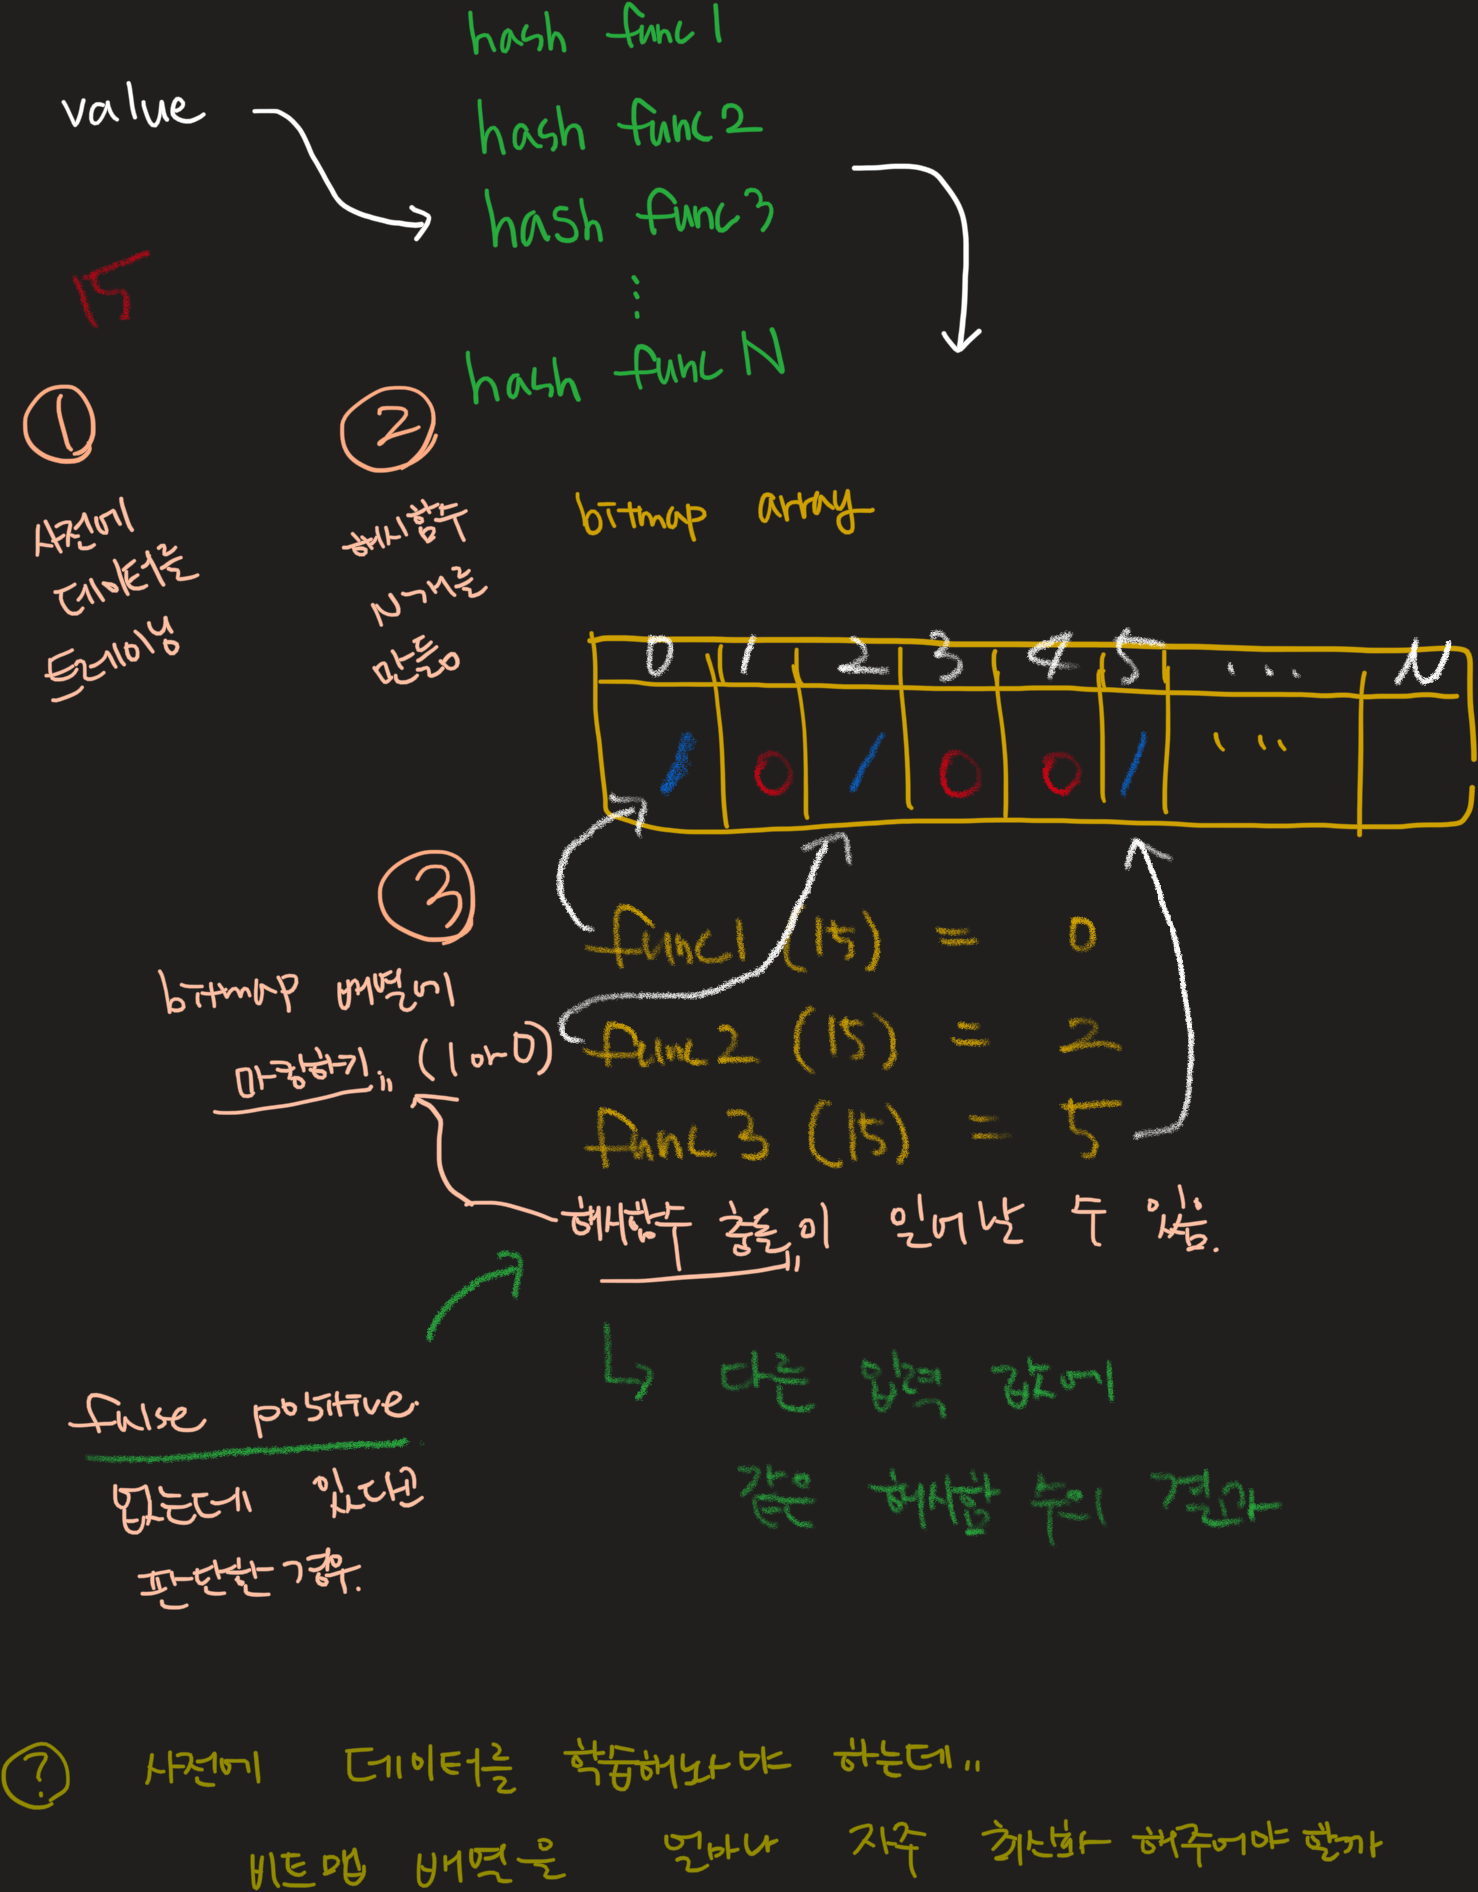 hash func 1
value
hash func 2
hash func 3
15
⋮
hash func N
①
②
사전에
데이터를
트레이닝
해시함수
N개를
만듦
bitmap array
0 1 2 3 4 5 ... N
1 0 1 0 0 1 ...
③
bitmap 배열에
마킹하기,, (1 or 0)
func1 (15) = 0
func2 (15) = 2
func3 (15) = 5
해시함수 충돌,,이 일어날 수 있음.
↳ 다른 입력 값에
같은 해시함수의 결과
false positive.
없는데 있다고
판단한 경우.
? 사전에 데이터를 학습해놔야 하는데..
비트맵 배열을 얼마나 자주 최신화 해주어야 할까